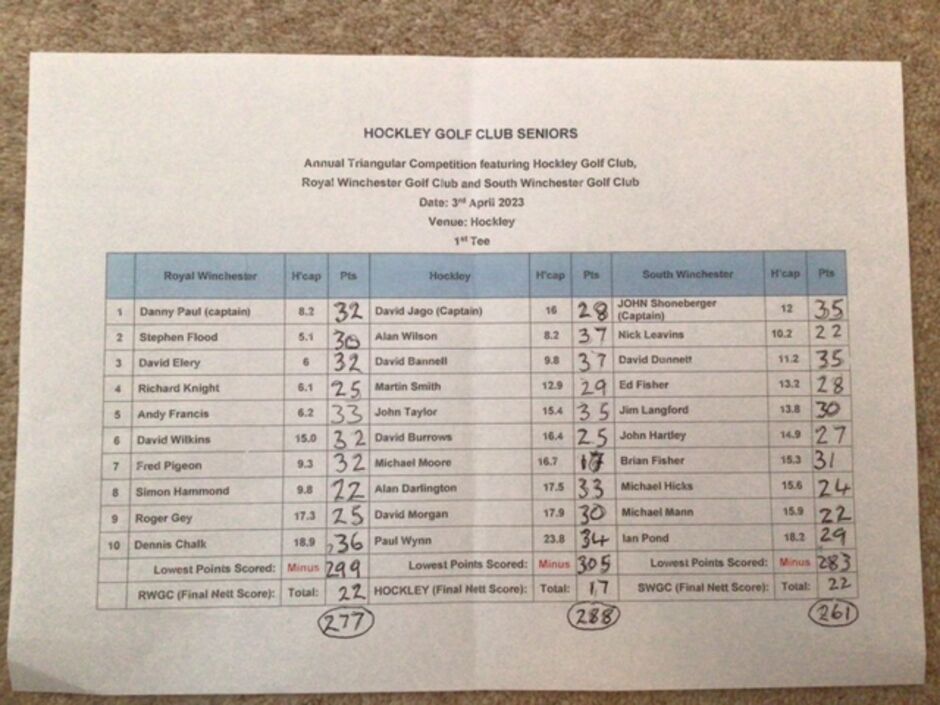 HOCKLEY GOLF CLUB SENIORS
Annual Triangular Competition featuring Hockley Golf Club,
Royal Winchester Golf Club and South Winchester Golf Club
Date: 3rd April 2023
Venue: Hockley
1st Tee
Royal Winchester H'cap Pts Hockley H'cap Pts South Winchester H'cap Pts
1 Danny Paul (captain) 8.2 32 David Jago (Captain) 16 28 JOHN Shoneberger (Captain) 12 35
2 Stephen Flood 5.1 30 Alan Wilson 8.2 37 Nick Leavins 10.2 22
3 David Elery 6 32 David Bannell 9.8 37 David Dunnett 11.2 35
4 Richard Knight 6.1 25 Martin Smith 12.9 29 Ed Fisher 13.2 28
5 Andy Francis 6.2 33 John Taylor 15.4 35 Jim Langford 13.8 30
6 David Wilkins 15.0 32 David Burrows 16.4 25 John Hartley 14.9 27
7 Fred Pigeon 9.3 32 Michael Moore 16.7 17 Brian Fisher 15.3 31
8 Simon Hammond 9.8 22 Alan Darlington 17.5 33 Michael Hicks 15.6 24
9 Roger Gey 17.3 25 David Morgan 17.9 30 Michael Mann 15.9 22
10 Dennis Chalk 18.9 36 Paul Wynn 23.8 34 Ian Pond 18.2 29
Lowest Points Scored: Minus 299 Lowest Points Scored: Minus 305 Lowest Points Scored: Minus 283
RWGC (Final Nett Score): Total: 22 HOCKLEY (Final Nett Score): Total: 17 SWGC (Final Nett Score): Total: 22
277 288 261